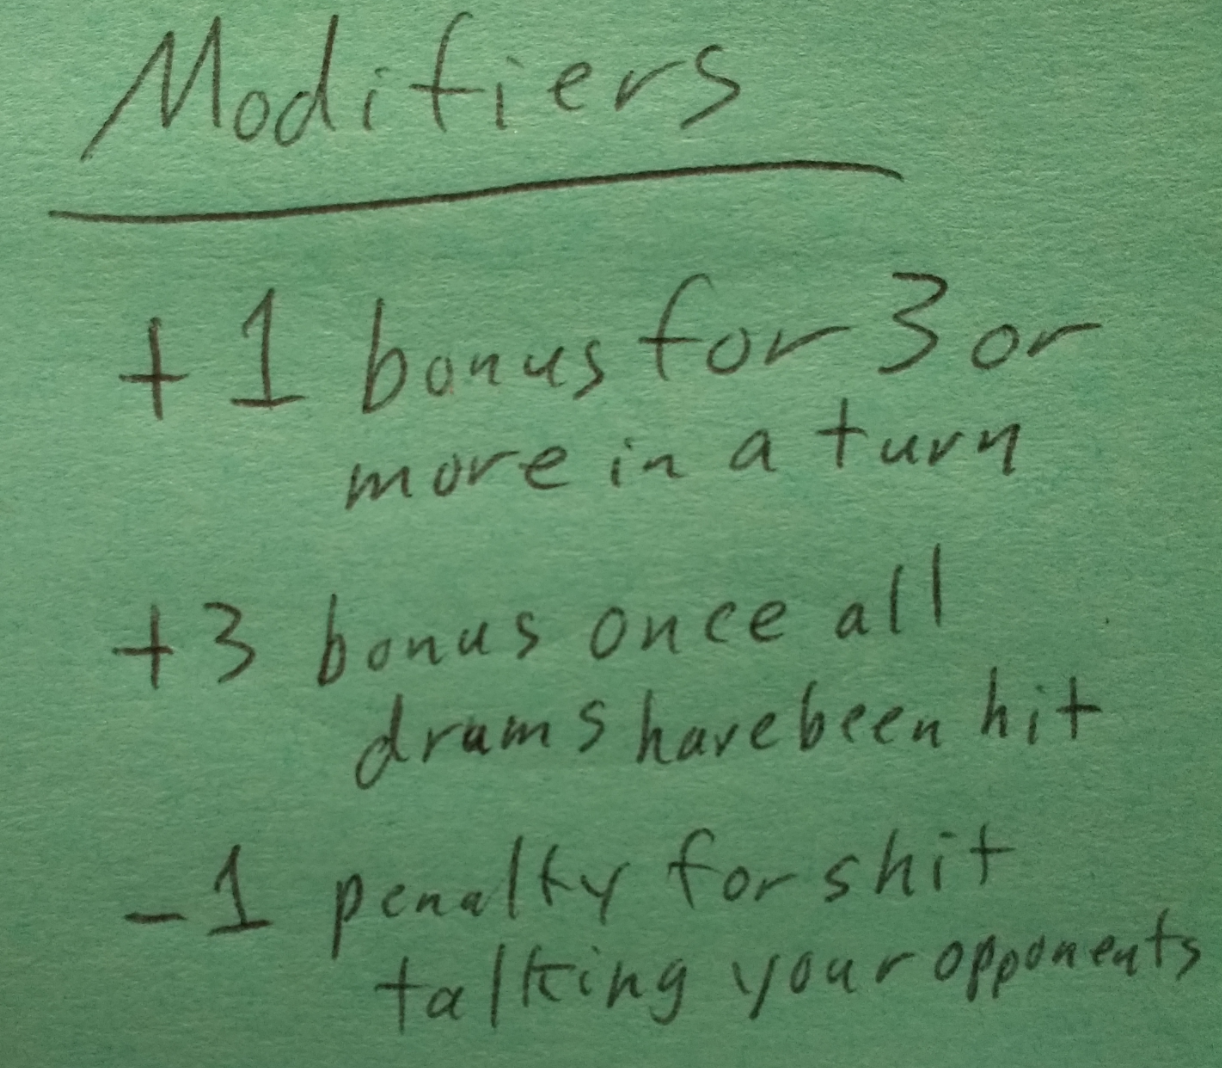 Modifiers
+1 bonus for 3 or
more in a turn
+3 bonus once all
drums have been hit
-1 penalty for shit
talking your opponents